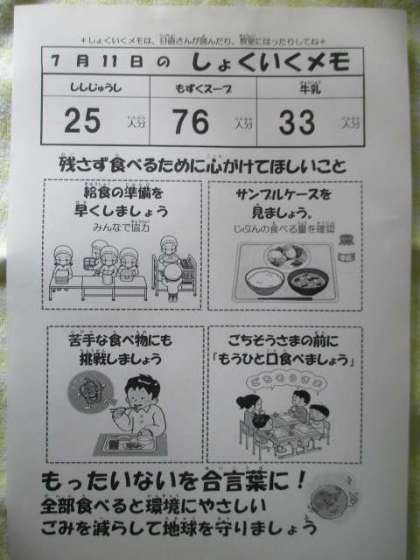 ＊しょくいくメモは、日直さんが読んだり、教室にはったりしてね＊
7月11日の しょくいくメモ
ししじゅうし もずくスープ 牛乳
25人分 76人分 33人分
残さず食べるために心がけてほしいこと
給食の準備を
早くしましょう
みんなで協力
サンプルケースを
見ましょう。
じぶんの食べる量を確認
苦手な食べ物にも
挑戦しましょう
ごちそうさまの前に
「もうひと口食べましょう」
ごちそうさま
もったいないを合言葉に！
全部食べると環境にやさしい
ごみを減らして地球を守りましょう